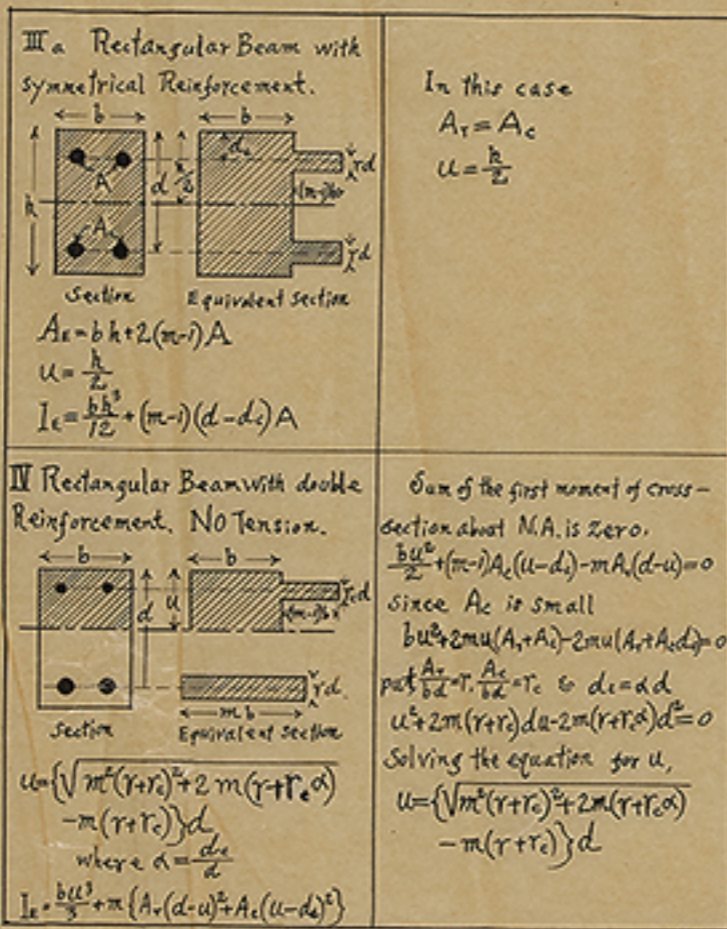 IIIa Rectangular Beam with
symmetrical Reinforcement.
b
b
h
A
d
h/2
d_c
rd
(m-1)b
A_c
rd
Section
Equivalent section
A_E = bh + 2(m-1)A
u = h/2
I_E = bh³/12 + (m-1)(d-d_c)A
In this case
A_r = A_c
u = h/2
IV Rectangular Beam with double
Reinforcement. No Tension.
b
b
d
u
r_c d
(m-1)b
rd
m b
Section
Equivalent section
u = {√m²(r+r_c)² + 2m(r+r_c α)
-m(r+r_c)}d
where α = d_c/d
I_E = bu³/3 + m{A_r(d-u)² + A_c(u-d_c)²}
Sum of the first moment of cross-
section about N.A. is zero.
bu²/2 + (m-1)A_c(u-d_c) - mA_r(d-u) = 0
since A_c is small
bu² + 2mu(A_r+A_c) - 2mu(A_r+A_c d_c) = 0
put A_r/bd = r, A_c/bd = r_c & d_c = αd
u² + 2m(r+r_c)du - 2m(r+r_c α)d² = 0
Solving the equation for u,
u = {√m²(r+r_c)² + 2m(r+r_c α)
-m(r+r_c)}d